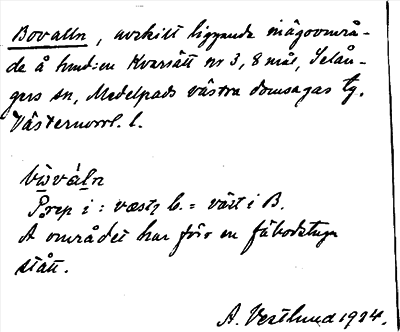 Bovalln, avskilt liggande inägoområ-
de å hmd:en Kvarsätt nr 3, 8 mål, Selån-
gers sn, Medelpads västra domsagas tg.
Västernorrl. l.
Prep i : væst, b. = väst i B.
A området har förr en fäbodstuga
stått.
A. Vestlund 1924.